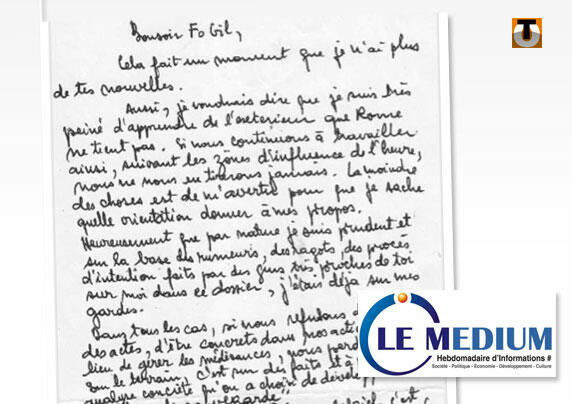 Bonsoir Fo Gil,
Cela fait un moment que je n'ai plus
de tes nouvelles.
Aussi, je voudrais dire que je suis très
peiné d'apprendre de l'exterieur que Rome
ne tient pas. Si nous continuons à travailler
ainsi, suivant les zônes d'influence de l'heure,
nous ne nous en tirerons jamais. La moindre
des choses est de m'avertir pour que je sache
quelle orientation donner à mes propos.
Heureusement que par nature je suis prudent et
sur la base des rumeurs, des ragots, des procès
d'intention faits par des gens très proches de toi
sur moi dans ce dossier, j'étais déjà sur mes
gardes.
Dans tous les cas, si nous refusons
des actes, d'être concrets dans nos acti
lieu de gérer les médisances, nous perd
sur le terrain. C'est sur des faits et à
analyse concrète qu'on a choisi de
T
LE MEDIUM
Hebdomadaire d'Informations #
Société - Politique - Economie - Développement - Culture